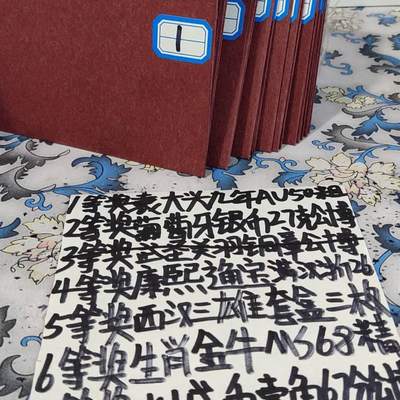 1
1等奖袁大头九年AU58
2等奖葡萄牙银币27克公博
3等奖武圣关羽铜章公博
4等奖康熙通宝满汉浙26
5等奖西汉三雄套盒三枚
6等奖生肖金牛MS68精